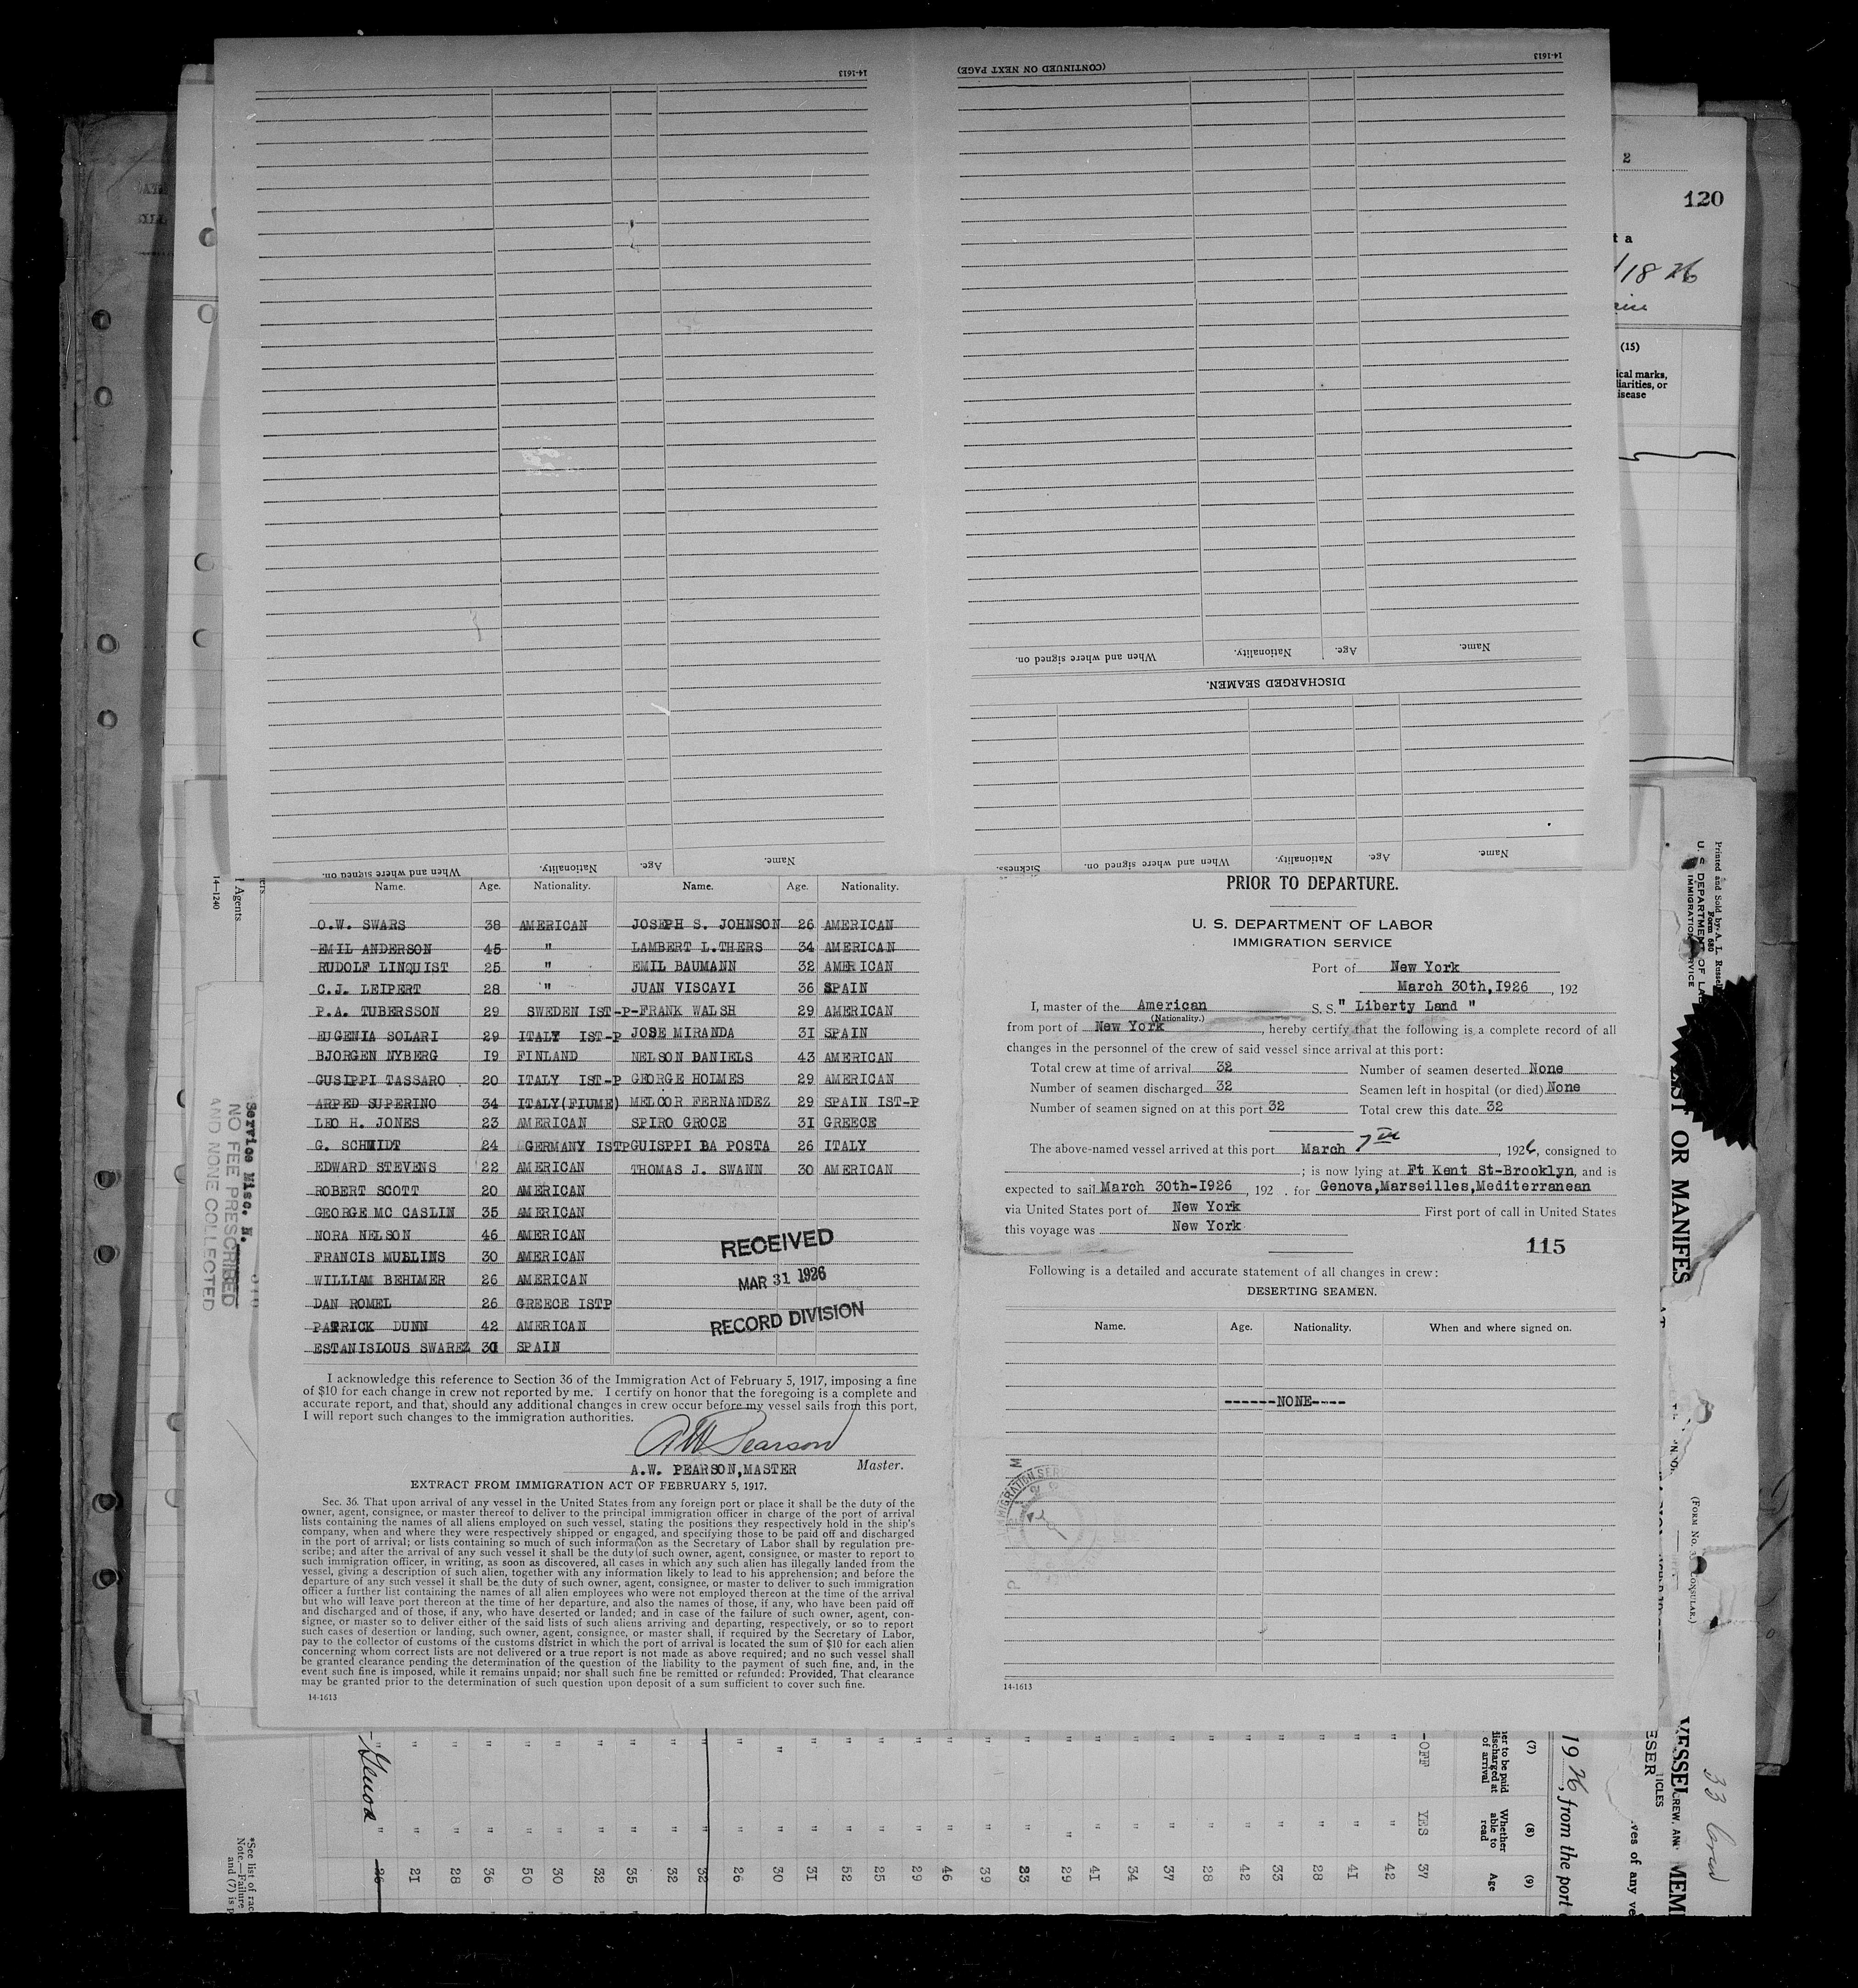 14-1613
(CONTINUED ON NEXT PAGE)
14-1613
When and where signed on.
Nationality.
Age.
Name.
DISCHARGED SEAMEN.
Sickness.
When and where signed on.
Nationality.
Age.
Name.
When and where signed on.
Nationality.
Age.
Name.
2
120
18 26
(15)
ical marks,
liarities, or
isease
Name. Age. Nationality. Name. Age. Nationality.
O.W. SWARS 38 AMERICAN JOSEPH S. JOHNSON 26 AMERICAN
EMIL ANDERSON 45 " LAMBERT L.THERS 34 AMERICAN
RUDOLF LINQUIST 25 " EMIL BAUMANN 32 AMERICAN
C.J. LEIPERT 28 " JUAN VISCAYI 36 SPAIN
P.A. TUBERSSON 29 SWEDEN IST-P-FRANK WALSH 29 AMERICAN
EUGENIA SOLARI 29 ITALY IST-P JOSE MIRANDA 3I SPAIN
BJORGEN NYBERG I9 FINLAND NELSON DANIELS 43 AMERICAN
GUSIPPI TASSARO 20 ITALY IST-P GEORGE HOLMES 29 AMERICAN
ARPED SUPERINO 34 ITALY(FIUME) MELCOR FERNANDEZ 29 SPAIN IST-P
LEO H. JONES 23 AMERICAN SPIRO GROCE 3I GREECE
G. SCHMIDT 24 GERMANY ISTPGUISPPI DA POSTA 26 ITALY
EDWARD STEVENS 22 AMERICAN THOMAS J. SWANN 30 AMERICAN
ROBERT SCOTT 20 AMERICAN
GEORGE MC CASLIN 35 AMERICAN
NORA NELSON 46 AMERICAN
FRANCIS MULLINS 30 AMERICAN
WILLIAM BEHLMER 26 AMERICAN
DAN ROMEL 26 GREECE ISTP
PATRICK DUNN 42 AMERICAN
ESTANISLOUS SWAREZ SPAIN
RECEIVED
MAR 31 1926
RECORD DIVISION
I acknowledge this reference to Section 36 of the Immigration Act of February 5, 1917, imposing a fine
of $10 for each change in crew not reported by me. I certify on honor that the foregoing is a complete and
accurate report, and that, should any additional changes in crew occur before my vessel sails from this port,
I will report such changes to the immigration authorities.
AW Pearson
A.W. PEARSON,MASTER Master.
EXTRACT FROM IMMIGRATION ACT OF FEBRUARY 5, 1917.
Sec. 36. That upon arrival of any vessel in the United States from any foreign port or place it shall be the duty of the
owner, agent, consignee, or master thereof to deliver to the principal immigration officer in charge of the port of arrival
lists containing the names of all aliens employed on such vessel, stating the positions they respectively hold in the ship's
company, when and where they were respectively shipped or engaged, and specifying those to be paid off and discharged
in the port of arrival; or lists containing so much of such information as the Secretary of Labor shall by regulation pre-
scribe; and after the arrival of any such vessel it shall be the duty of such owner, agent, consignee, or master to report to
such immigration officer, in writing, as soon as discovered, all cases in which any such alien has illegally landed from the
vessel, giving a description of such alien, together with any information likely to lead to his apprehension; and before the
departure of any such vessel it shall be the duty of such owner, agent, consignee, or master to deliver to such immigration
officer a further list containing the names of all alien employees who were not employed thereon at the time of the arrival
but who will leave port thereon at the time of her departure, and also the names of those, if any, who have been paid off
and discharged and of those, if any, who have deserted or landed; and in case of the failure of such owner, agent, con-
signee, or master so to deliver either of the said lists of such aliens arriving and departing, respectively, or so to report
such cases of desertion or landing, such owner, agent, consignee, or master shall, if required by the Secretary of Labor,
pay to the collector of customs of the customs district in which the port of arrival is located the sum of $10 for each alien
concerning whom correct lists are not delivered or a true report is not made as above required; and no such vessel shall
be granted clearance pending the determination of the question of the liability to the payment of such fine, and, in the
event such fine is imposed, while it remains unpaid; nor shall such fine be remitted or refunded: Provided, That clearance
may be granted prior to the determination of such question upon deposit of a sum sufficient to cover such fine.
14-1613
PRIOR TO DEPARTURE.
U. S. DEPARTMENT OF LABOR
IMMIGRATION SERVICE
Port of New York
March 30th,I926, 192
I, master of the American S. S. " Liberty Land "
(Nationality.)
from port of New York, hereby certify that the following is a complete record of all
changes in the personnel of the crew of said vessel since arrival at this port:
Total crew at time of arrival 32 Number of seamen deserted None
Number of seamen discharged 32 Seamen left in hospital (or died) None
Number of seamen signed on at this port 32 Total crew this date 32
The above-named vessel arrived at this port March 7th, 1926, consigned to
; is now lying at Ft Kent St-Brooklyn, and is
expected to sail March 30th-I926, 192 . for Genova,Marseilles,Mediterranean
via United States port of New York First port of call in United States
this voyage was New York
115
Following is a detailed and accurate statement of all changes in crew:
DESERTING SEAMEN.
Name. Age. Nationality. When and where signed on.
------NONE----
14-1613
14-1240
Agents.
Service Misc. N.
NO FEE PRESCRIBED
AND NONE COLLECTED
Printed and Sold by A. L. Russel
Form 680
U. S. DEPARTMENT OF LAB
IMMIGRATION SERVICE
IST OR MANIFES
(FORM No. CONSULAR.)
VESSEL
CREW, AN
MEM
33 crew
ves of any ve
1926, from the port
(7) (8) (9)
er to be paid
discharged at
of arrival
Whether
able to
read
Age
-OFF YES 37
42
41
28
33
42
28
37
34
41
29
23
39
46
29
25
52
31
30
26
32
32
35
32
30
50
36
28
21
26
Genoa
*See list of rac
Note.—Failure
and (7) is p